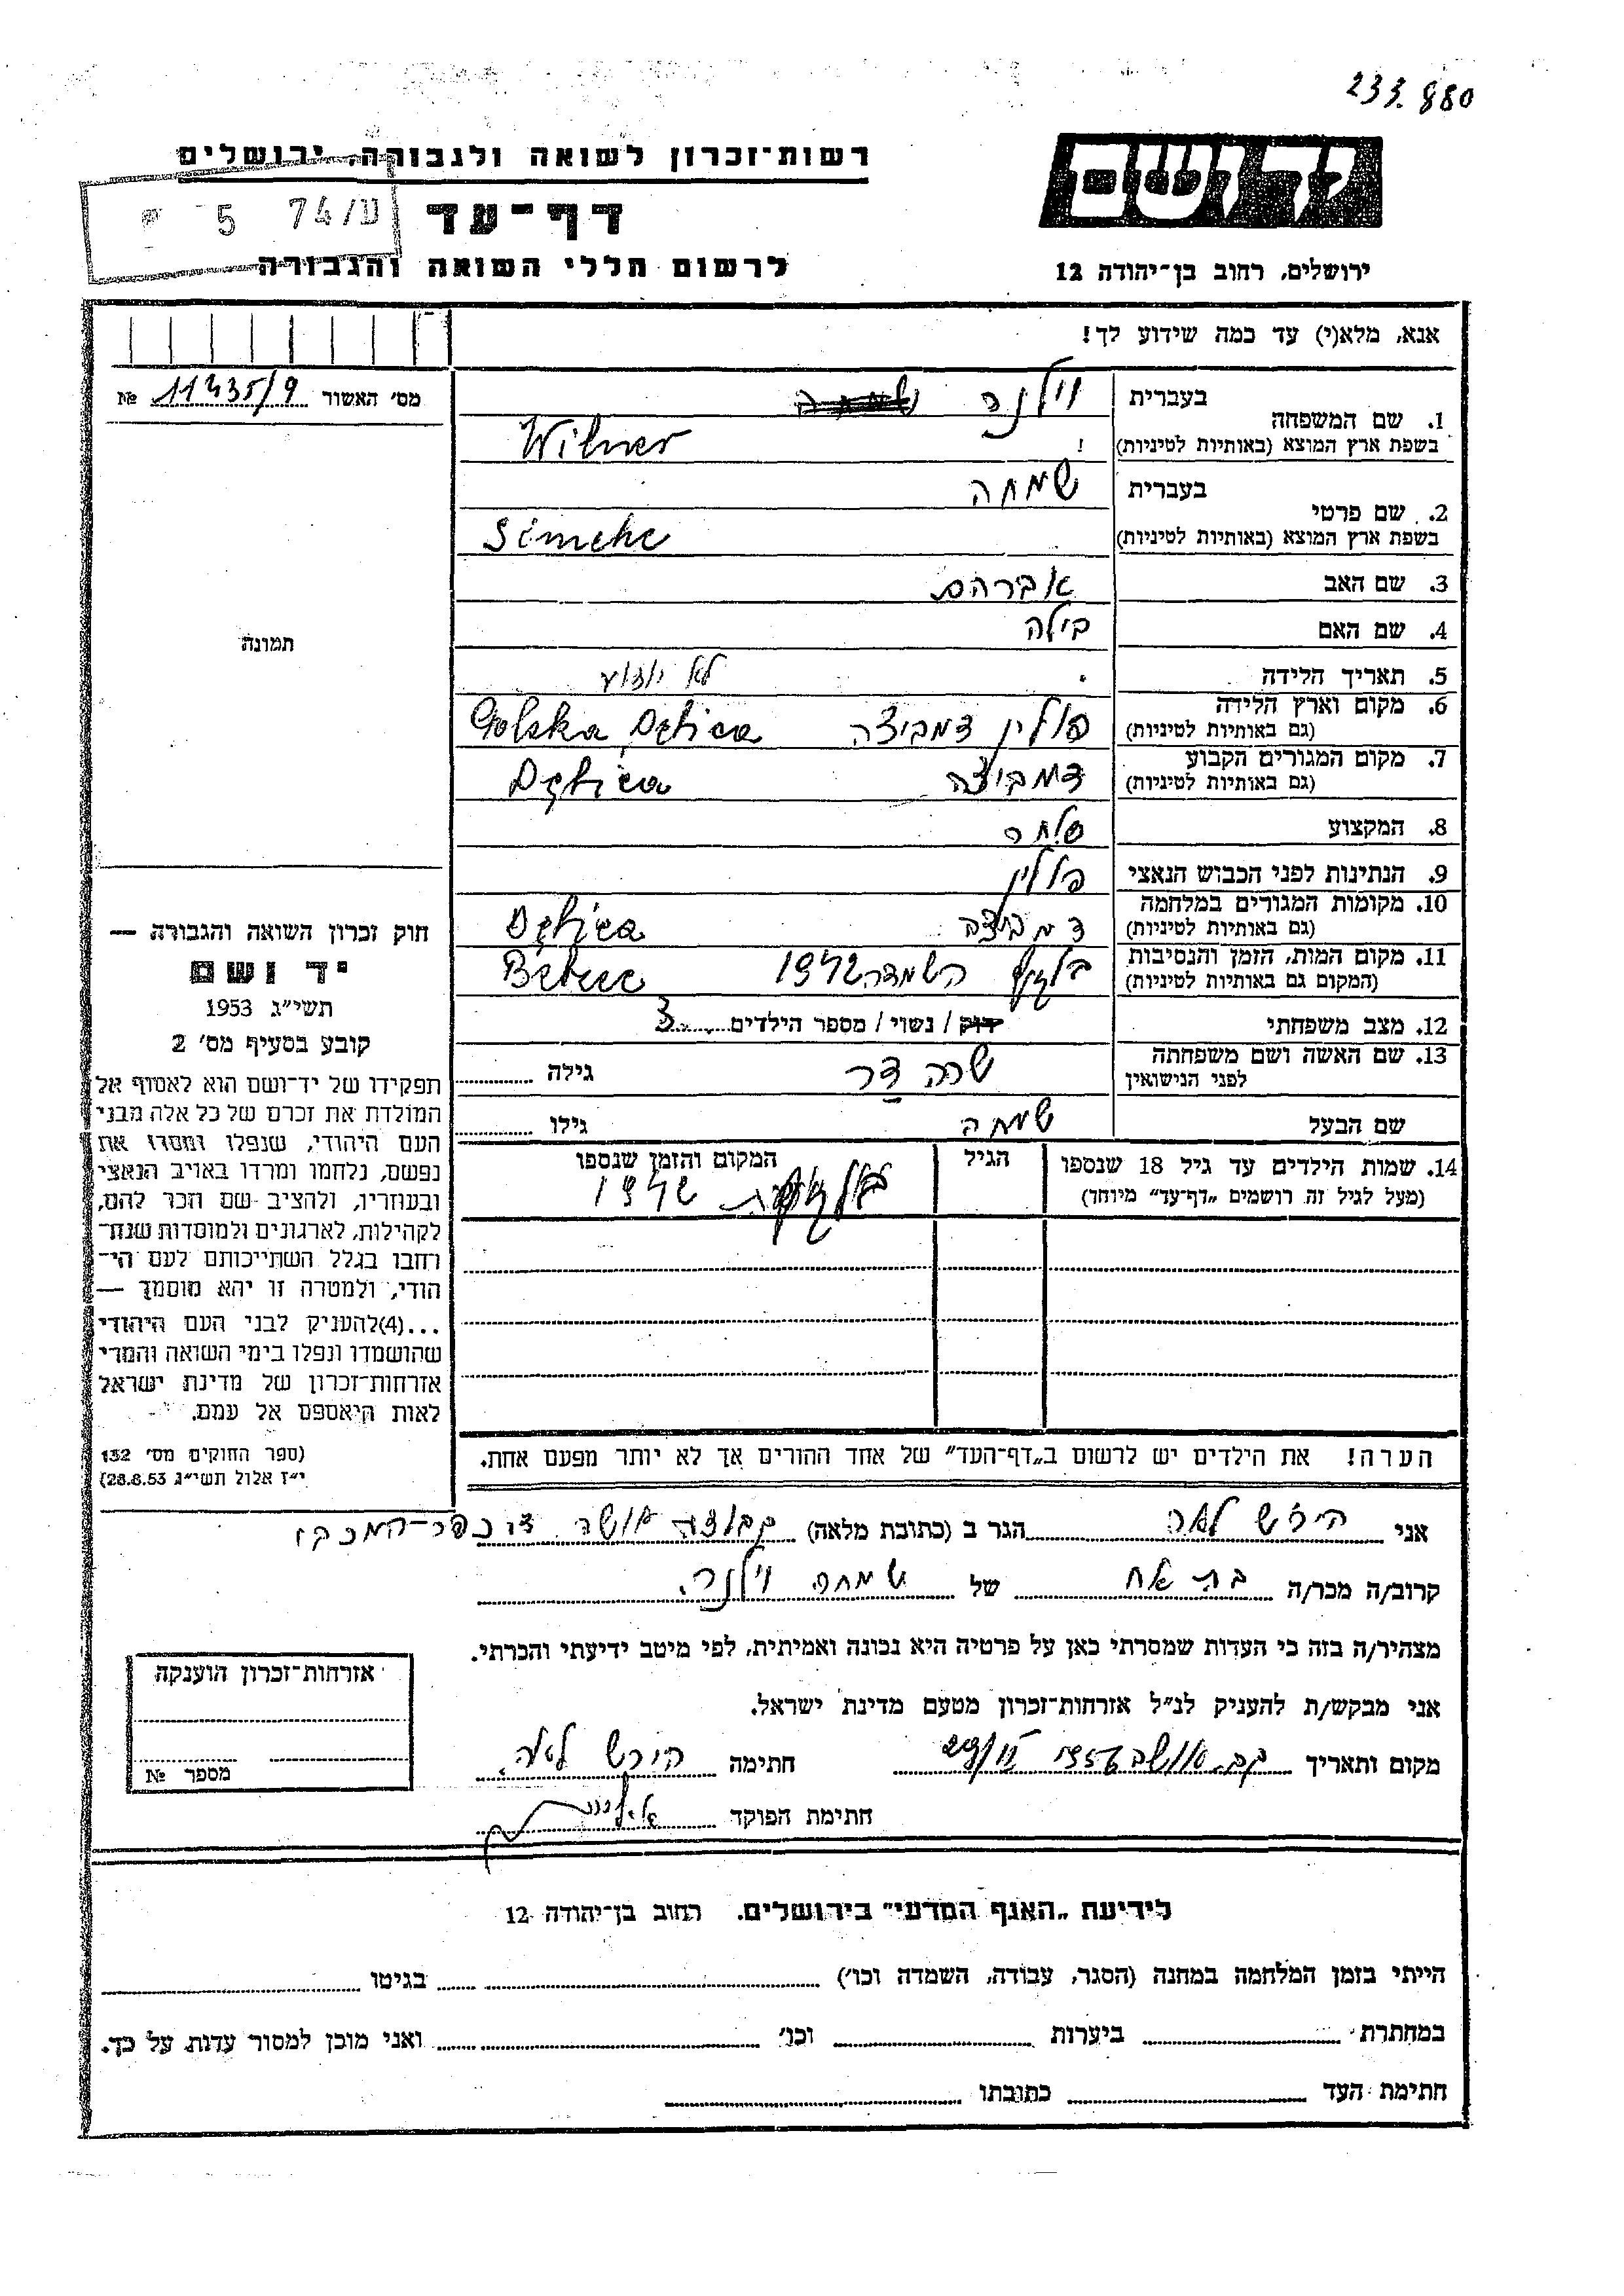 233.880
רשות־זכרון לשואה ולגבורה, ירושלים
יד ושם
5 74/ע
דף־עד
לרשום חללי השואה והגבורה
ירושלים, רחוב בן־יהודה 12
אנא, מלא(י) עד כמה שידוע לך!
מס׳ האשור 11435/9 №
1. שם המשפחה
בעברית וילנר
בשפת ארץ המוצא (באותיות לטיניות) Wilner
2. שם פרטי
בעברית שמחה
בשפת ארץ המוצא (באותיות לטיניות) Simche
3. שם האב אברהם
4. שם האם בילה
תמונה
5. תאריך הלידה לא ידוע
6. מקום וארץ הלידה פולין דמביצה Polska Dębica
(גם באותיות לטיניות)
7. מקום המגורים הקבוע דמביצה Dębica
(גם באותיות לטיניות)
8. המקצוע סוחר
9. הנתינות לפני הכבוש הנאצי פולין
10. מקומות המגורים במלחמה דמביצה Dębica
(גם באותיות לטיניות)
11. מקום המות, הזמן והנסיבות השמדה 1942
(המקום גם באותיות לטיניות)
12. מצב משפחתי רוק / נשוי / מספר הילדים 3
13. שם האשה ושם משפחתה שרה דר גילה
לפני הנישואין
שם הבעל שמחה גילו
14. שמות הילדים עד גיל 18 שנספו הגיל המקום והזמן שנספו
(מעל לגיל זה רושמים „דף־עד״ מיוחד) 1942
הערה! את הילדים יש לרשום ב„דף־העד״ של אחד ההורים אך לא יותר מפעם אחת.
חוק זכרון השואה והגבורה —
יד ושם
תשי״ג 1953
קובע בסעיף מס׳ 2
תפקידו של יד־ושם הוא לאסוף אל
המולדת את זכרם של כל אלה מבני
העם היהודי, שנפלו ומסרו את
נפשם, נלחמו ומרדו באויב הנאצי
ובעוזריו, ולהציב שם וזכר להם,
לקהילות, לארגונים ולמוסדות שנח־
רחבו בגלל השתייכותם לעם הי־
הודי, ולמטרה זו יהא מוסמך —
...(4)להעניק לבני העם היהודי
שהושמדו ונפלו בימי השואה והמרי
אזרחות־זכרון של מדינת ישראל
לאות היאספם אל עמם.
(ספר החוקים מס׳ 132
י״ז אלול תשי״ג 28.8.53)
אני הירש לאה הגר ב (כתובת מלאה) קבוצה אושה ד. כפר-המכבי
קרוב/ה מכר/ה בת אח של שמחה וילנר.
מצהיר/ה בזה כי העדות שמסרתי כאן על פרטיה היא נכונה ואמיתית, לפי מיטב ידיעתי והכרתי.
אני מבקש/ת להעניק לנ״ל אזרחות־זכרון מטעם מדינת ישראל.
מקום ותאריך חתימה הירש לאה
חתימת הפוקד
אזרחות־זכרון הוענקה
מספר №
לידיעת „האגף המדעי״ בירושלים. רחוב בן־יהודה 12
הייתי בזמן המלחמה במחנה (הסגר, עבודה, השמדה וכו׳) בגיטו
במחתרת ביערות וכו׳ ואני מוכן למסור עדות על כך.
חתימת העד כתובתו